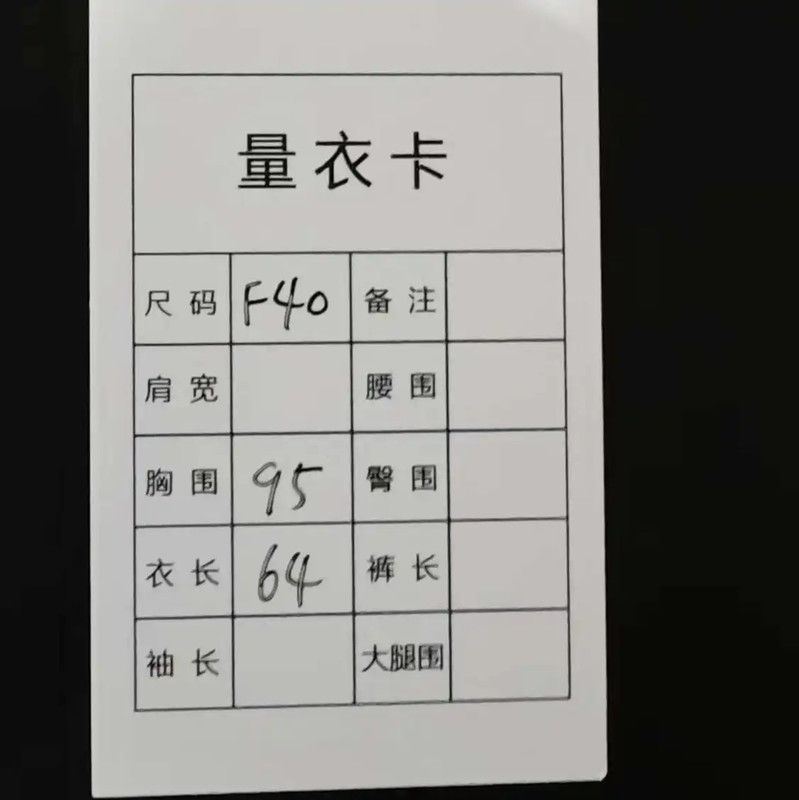 量衣卡
尺码 F40 备注
肩宽 腰围
胸围 95 臀围
衣长 64 裤长
袖长 大腿围